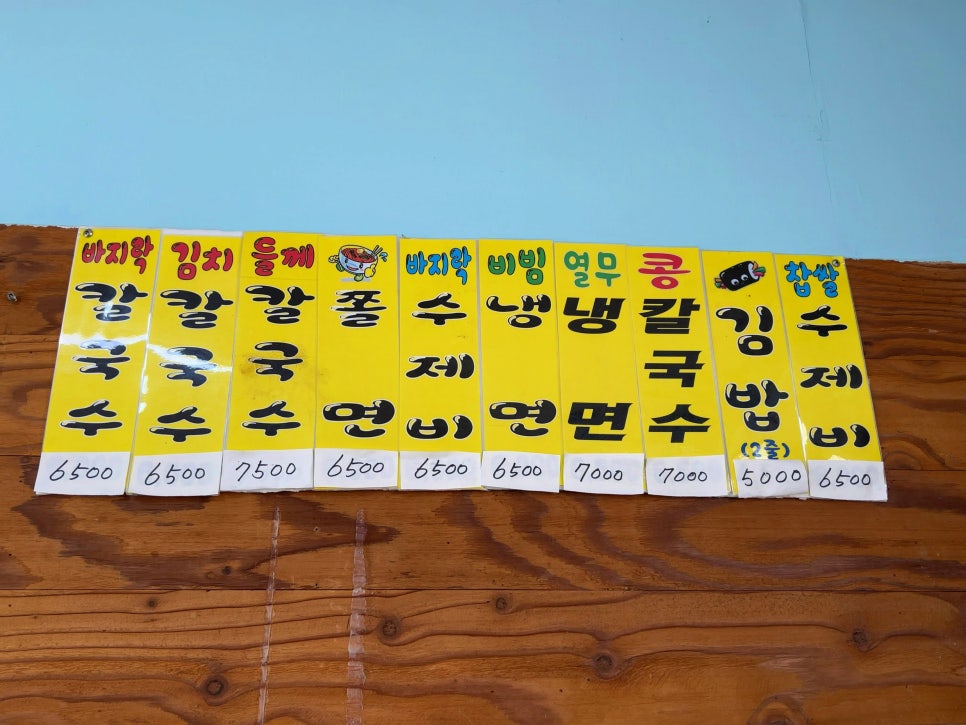 바지락 칼국수 6500
김치 칼국수 6500
들깨 칼국수 7500
쫄면 6500
바지락 수제비 6500
비빔 냉면 6500
열무 냉면 7000
콩 칼국수 7000
김밥 (2줄) 5000
찹쌀 수제비 6500